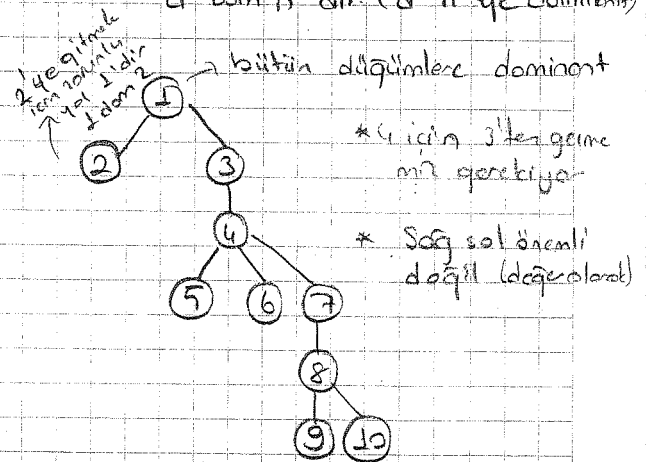 d dom n dir (d n ye dominant)
2'ye gitmek
için zorunlu
yol 1'dir
1 dom 2
→ bütün düğümlere dominant
1
2 3
* 4 için 3'ten geçme
mi gerekiyor
4
* Sağ sol önemli
değil (değer olarak)
5 6 7
8
9 10